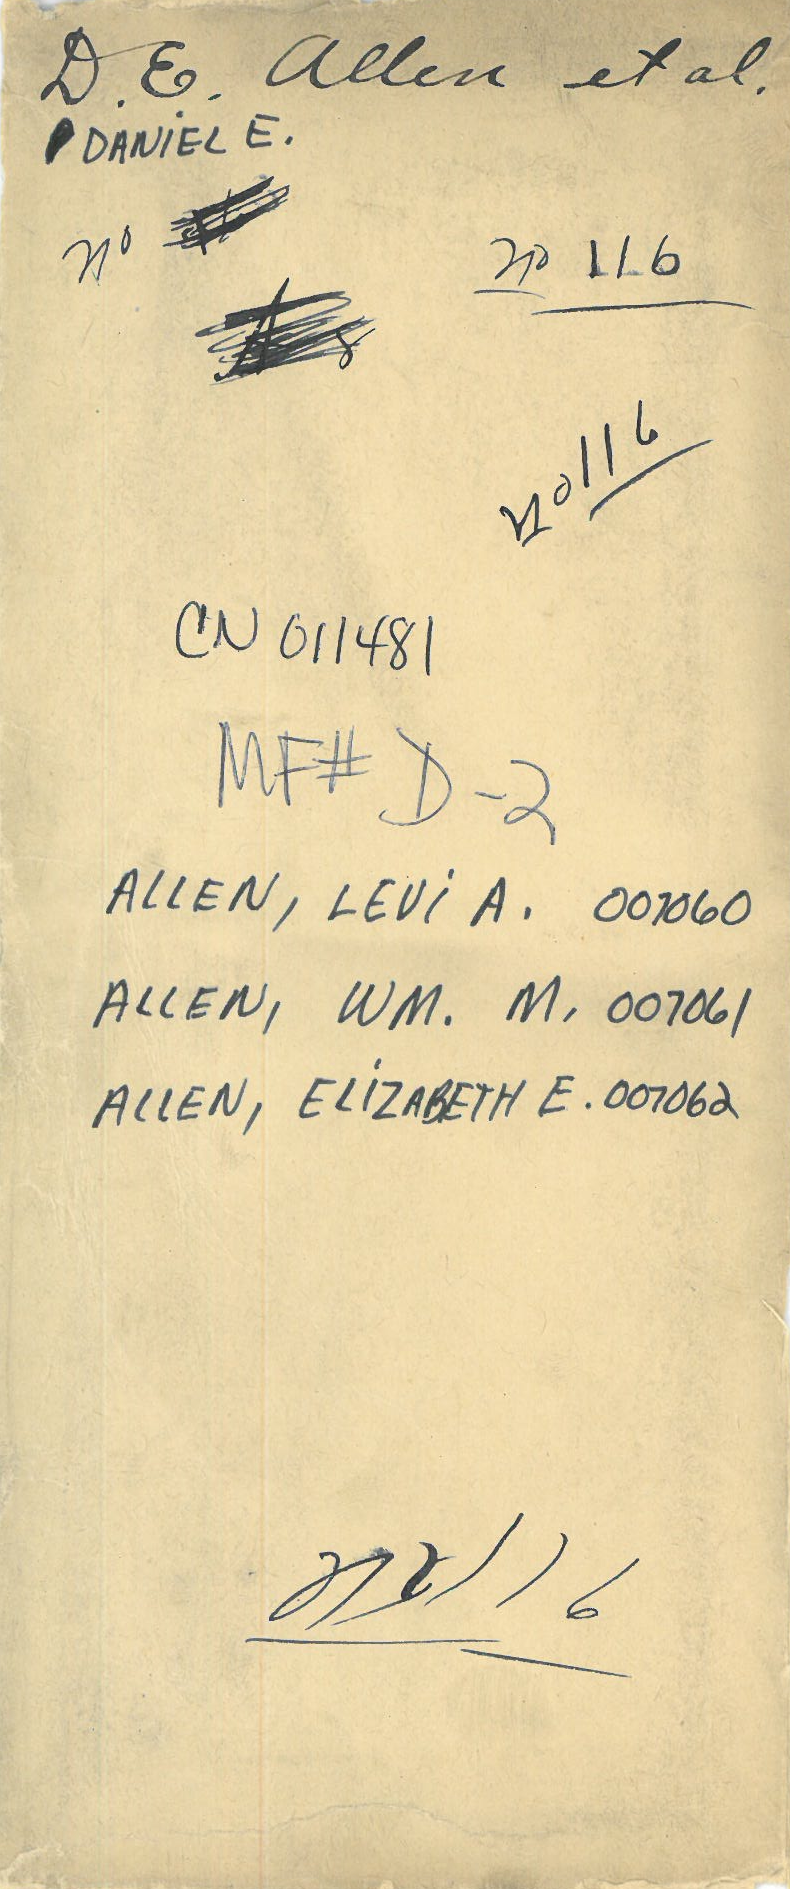 D. E. Allen et al.
DANIEL E.
No
No 116
No 116
CN 011481
MF# D-2
ALLEN, LEVI A. 007060
ALLEN, WM. M. 007061
ALLEN, ELIZABETH E. 007062
No 116